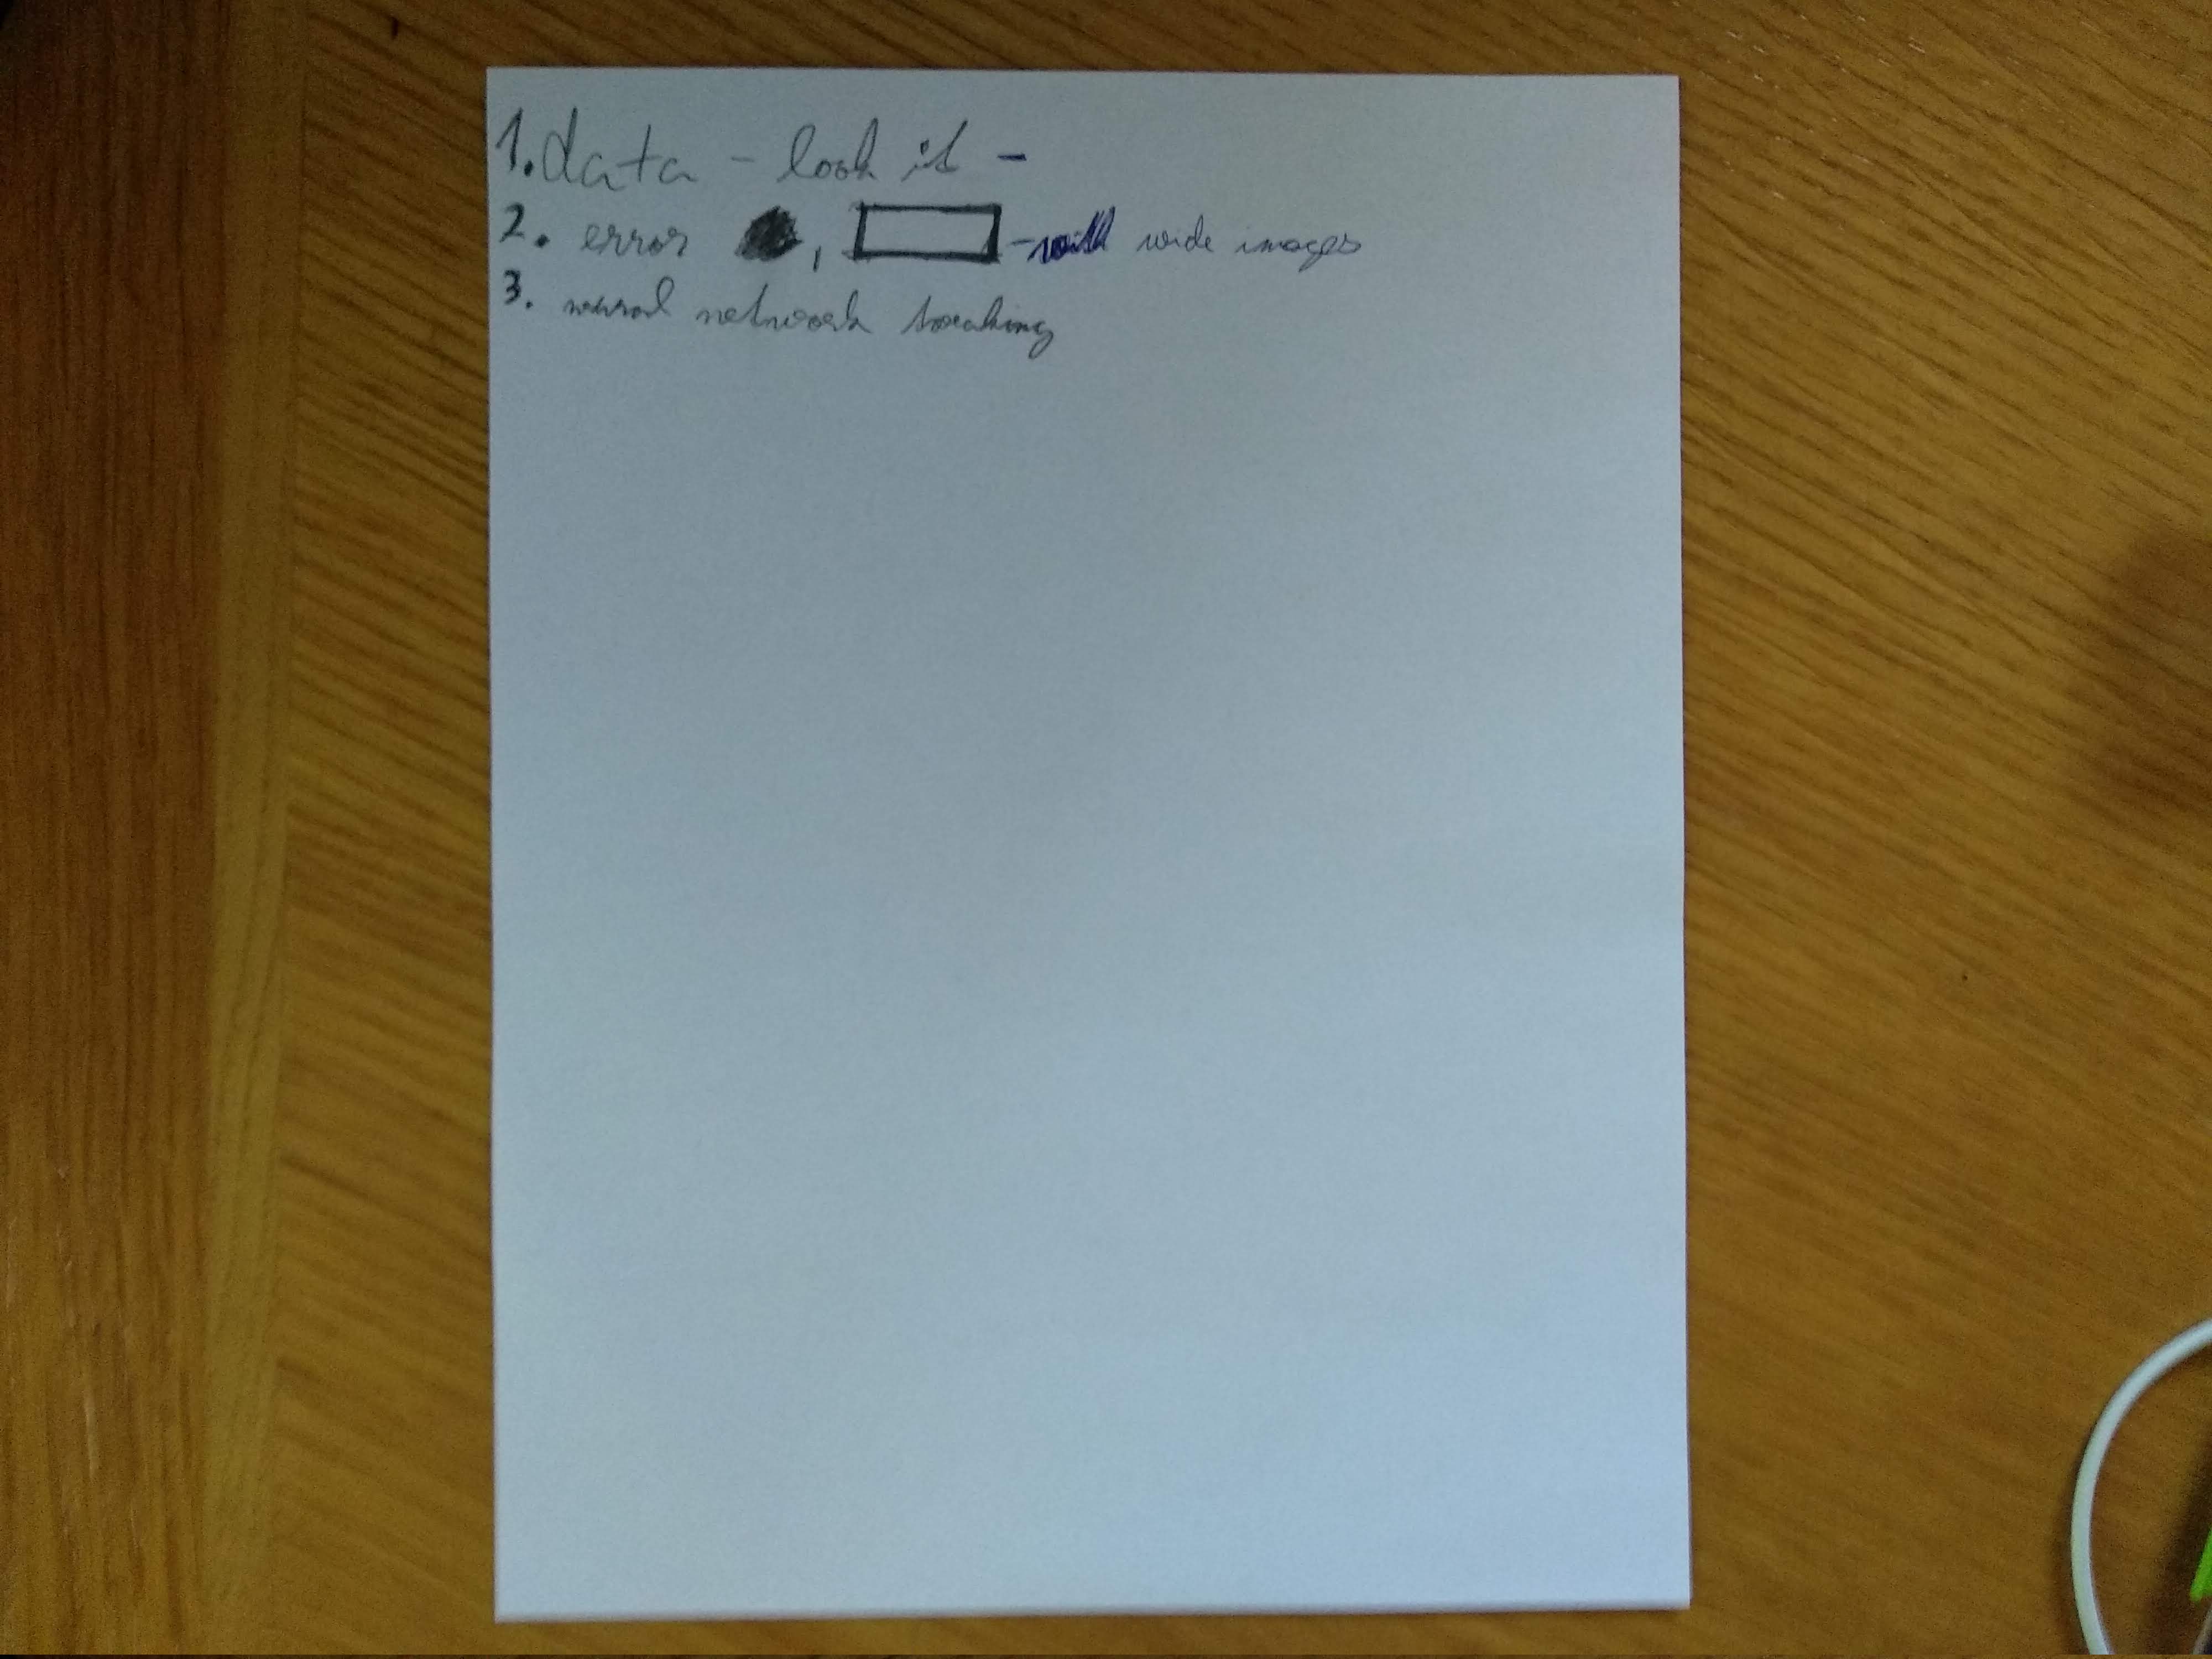 1. data - look it -
2. error , - with wide images
3. neural network